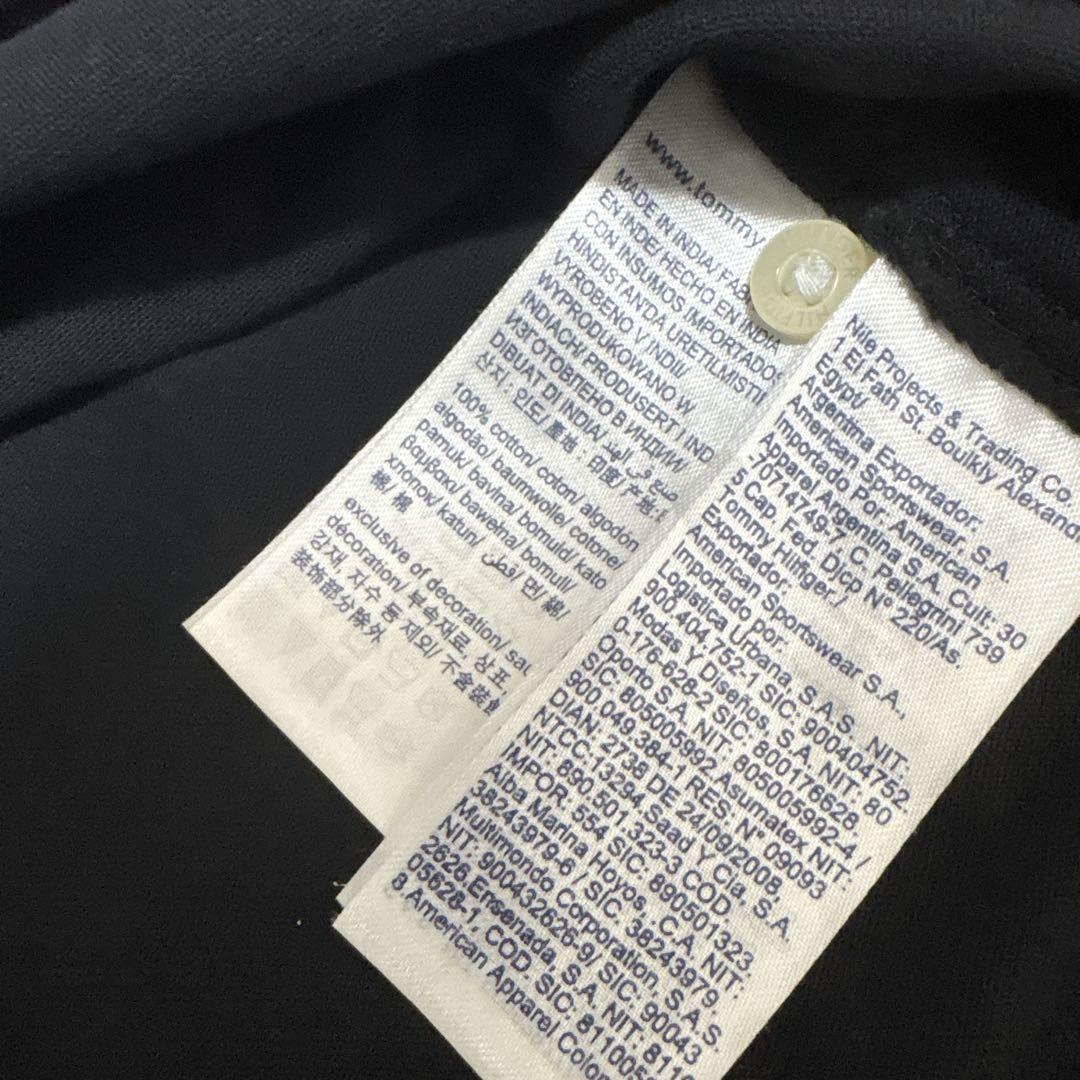 www.tommy
MADE IN INDIA/ FAB
EN INDE/ HECHO EN INDIA
CON INSUMOS IMPORTADOS
HINDISTANDA URETILMISTI
VYROBENO V INDII/
WYPRODUKOWANO W
INDIACH/ PRODUSERT I IND
ИЗГОТОВЛЕНО В ИНДИИ/
DIBUAT DI INDIA/ صنع في الهند
산지: 인도/ 產地: 印度/ 产地:
100% cotton/ coton/ algodon
algodão/ baumwolle/ cotone/
pamuk/ bavlna/ bomuld/ kato
βαμβακι/ bawełna/ bomull/
хлопок/ katun/ قطن/ 면/ 綿/
棉/ 棉
exclusive of decoration/ sau
décoration/ 부속재료 상표,
강재, 자수 등 제외/ 不含裝飾
装饰部分除外
Nile Projects & Trading Co
1 El Fath St. Bouikly Alexand
Egypt/
Argentina Exportador.
American Sportswear, S.A.
Importado Por. American
Apparel Argentina S.A. Cuit: 30
-70714749-7 C. Pellegrini 739
5 Cap. Fed. D/cp Nº 220/As.
Tommy Hilfiger./
Exportador.
American Sportswear S.A.,
Importado por.
Logistica Urbana, S.A.S. NIT:
900.404.752-1 SIC: 900404752
Modas Y Diseños, S.A. NIT: 80
0-176-628-2 SIC: 800176628.
Oporto S.A. NIT: 805005992-4 /
SIC: 805005992 Asumatex NIT:
900.049.384-1 RES: Nº 09093
DIAN 2738 DE 24/09/2008,
NTCC-13294 /Saad Y Cia, S.A.
NIT: 890.501.323-3 COD.
IMPOR: 554 / SIC: 890501323
Alba Marina Hoyos, C.A. NIT:
38243979-6 / SIC. 38243979.
Multimondo Corporation, S.A.S.
NIT: 900432626-9/ SIC: 90043
2626.Ensenada, S.A. NIT: 811
05628-1, COD. SIC: 8110056
8 American Apparel Colom